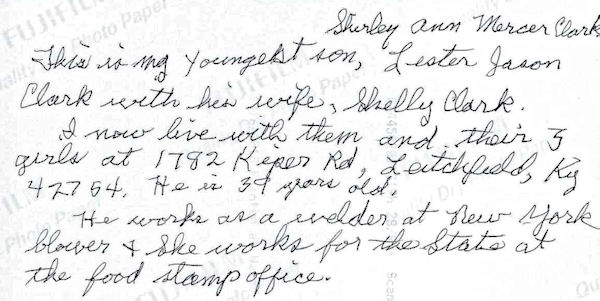 Shirley Ann Mercer Clark
This is my youngest son, Lester Jason
Clark with his wife, Shelly Clark.
I now live with them and their 3
girls at 1782 Kiper Rd, Leitchfield, Ky
42754. He is 39 years old.
He works as a welder at New York
blower & She works for the State at
the food stamp office.